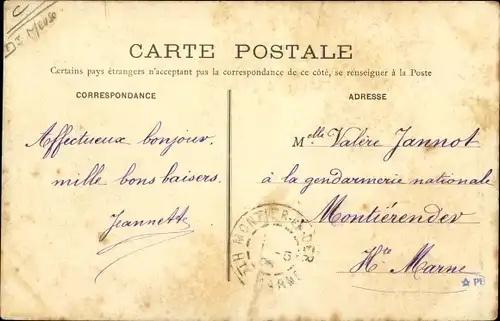 C
Dt Meuse
CARTE POSTALE
Certains pays étrangers n'acceptant pas la correspondance de ce côté, se renseigner à la Poste
CORRESPONDANCE
Affectueux bonjour.
mille bons baisers.
Jeannette
ADRESSE
Melle Valère Jannot
à la gendarmerie nationale
Montiérender
Hte Marne
MONTIER-EN-DER
HTE MARNE
PB